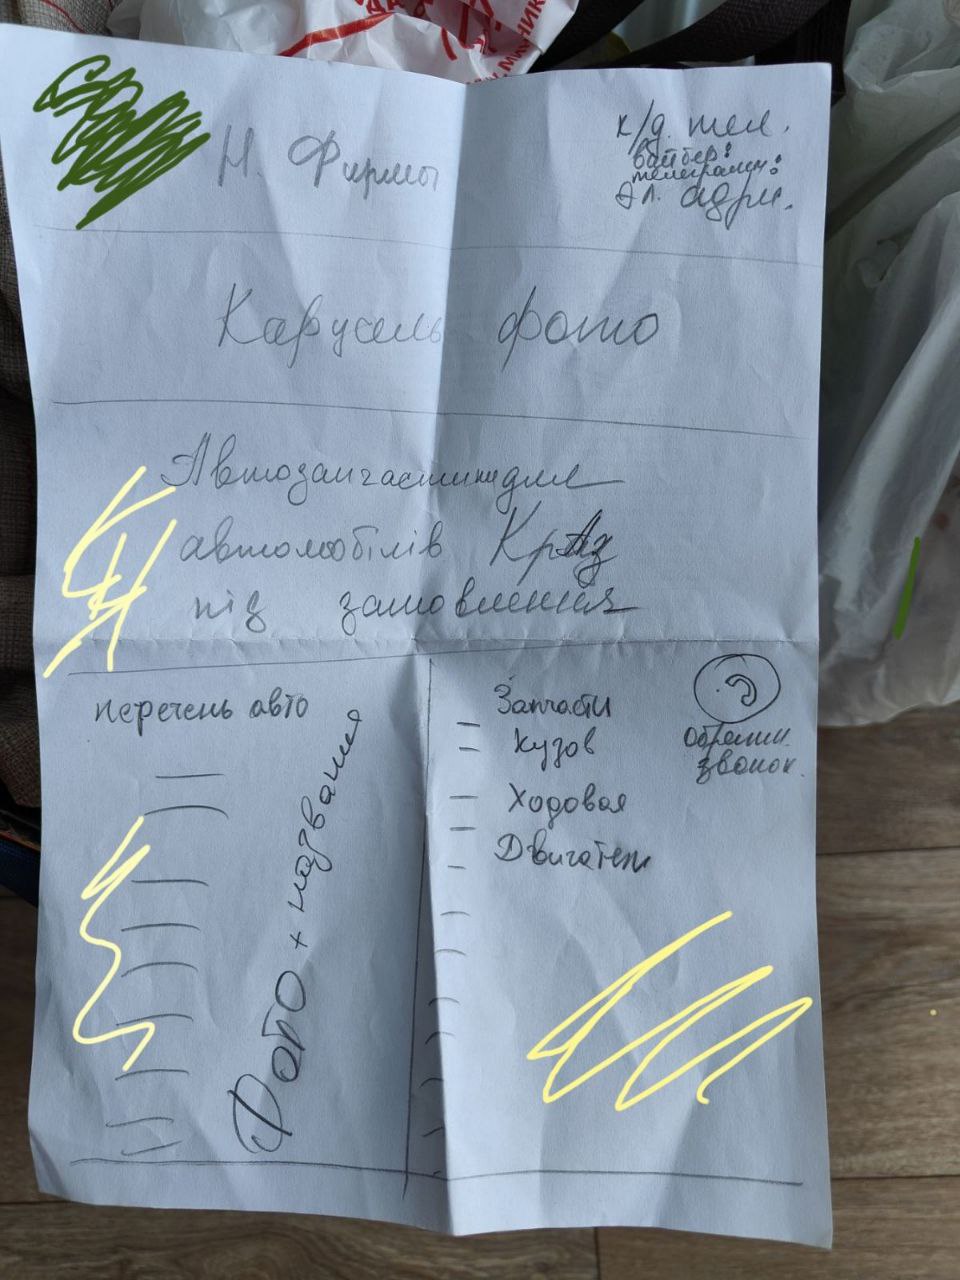 Н. Фирмы
к/д. тел.
вайбер:
телеграмм:
эл. адри.
Карусель фото
Автозапчастини для
автомобілів КрАз
під замовлення
перечень авто
Фото + название
Запчасти
Кузов
Ходовая
Двигатель
обратн.
звонок.